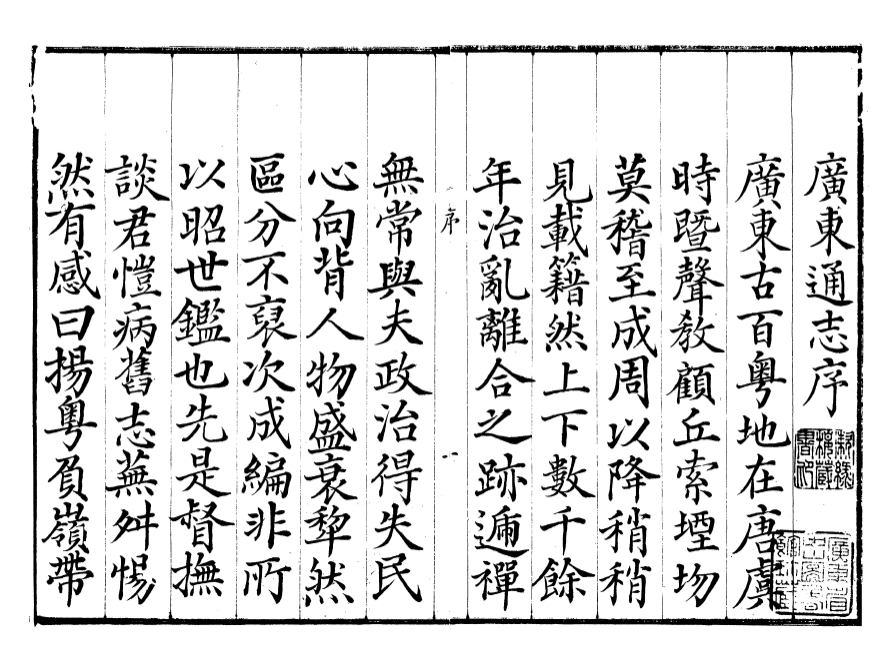 廣東通志序
廣東古百粵地在唐虞
時曁聲教顧丘索堙圽
莫稽至成周以降稍稍
見載籍然上下數千餘
年治亂離合之跡遞禪
序
一
無常與夫政治得失民
心向背人物盛衰犂然
區分不裒次成編非所
以昭世鑑也先是督撫
談君愷病舊志蕪舛惕
然有感曰揚粵負嶺帶